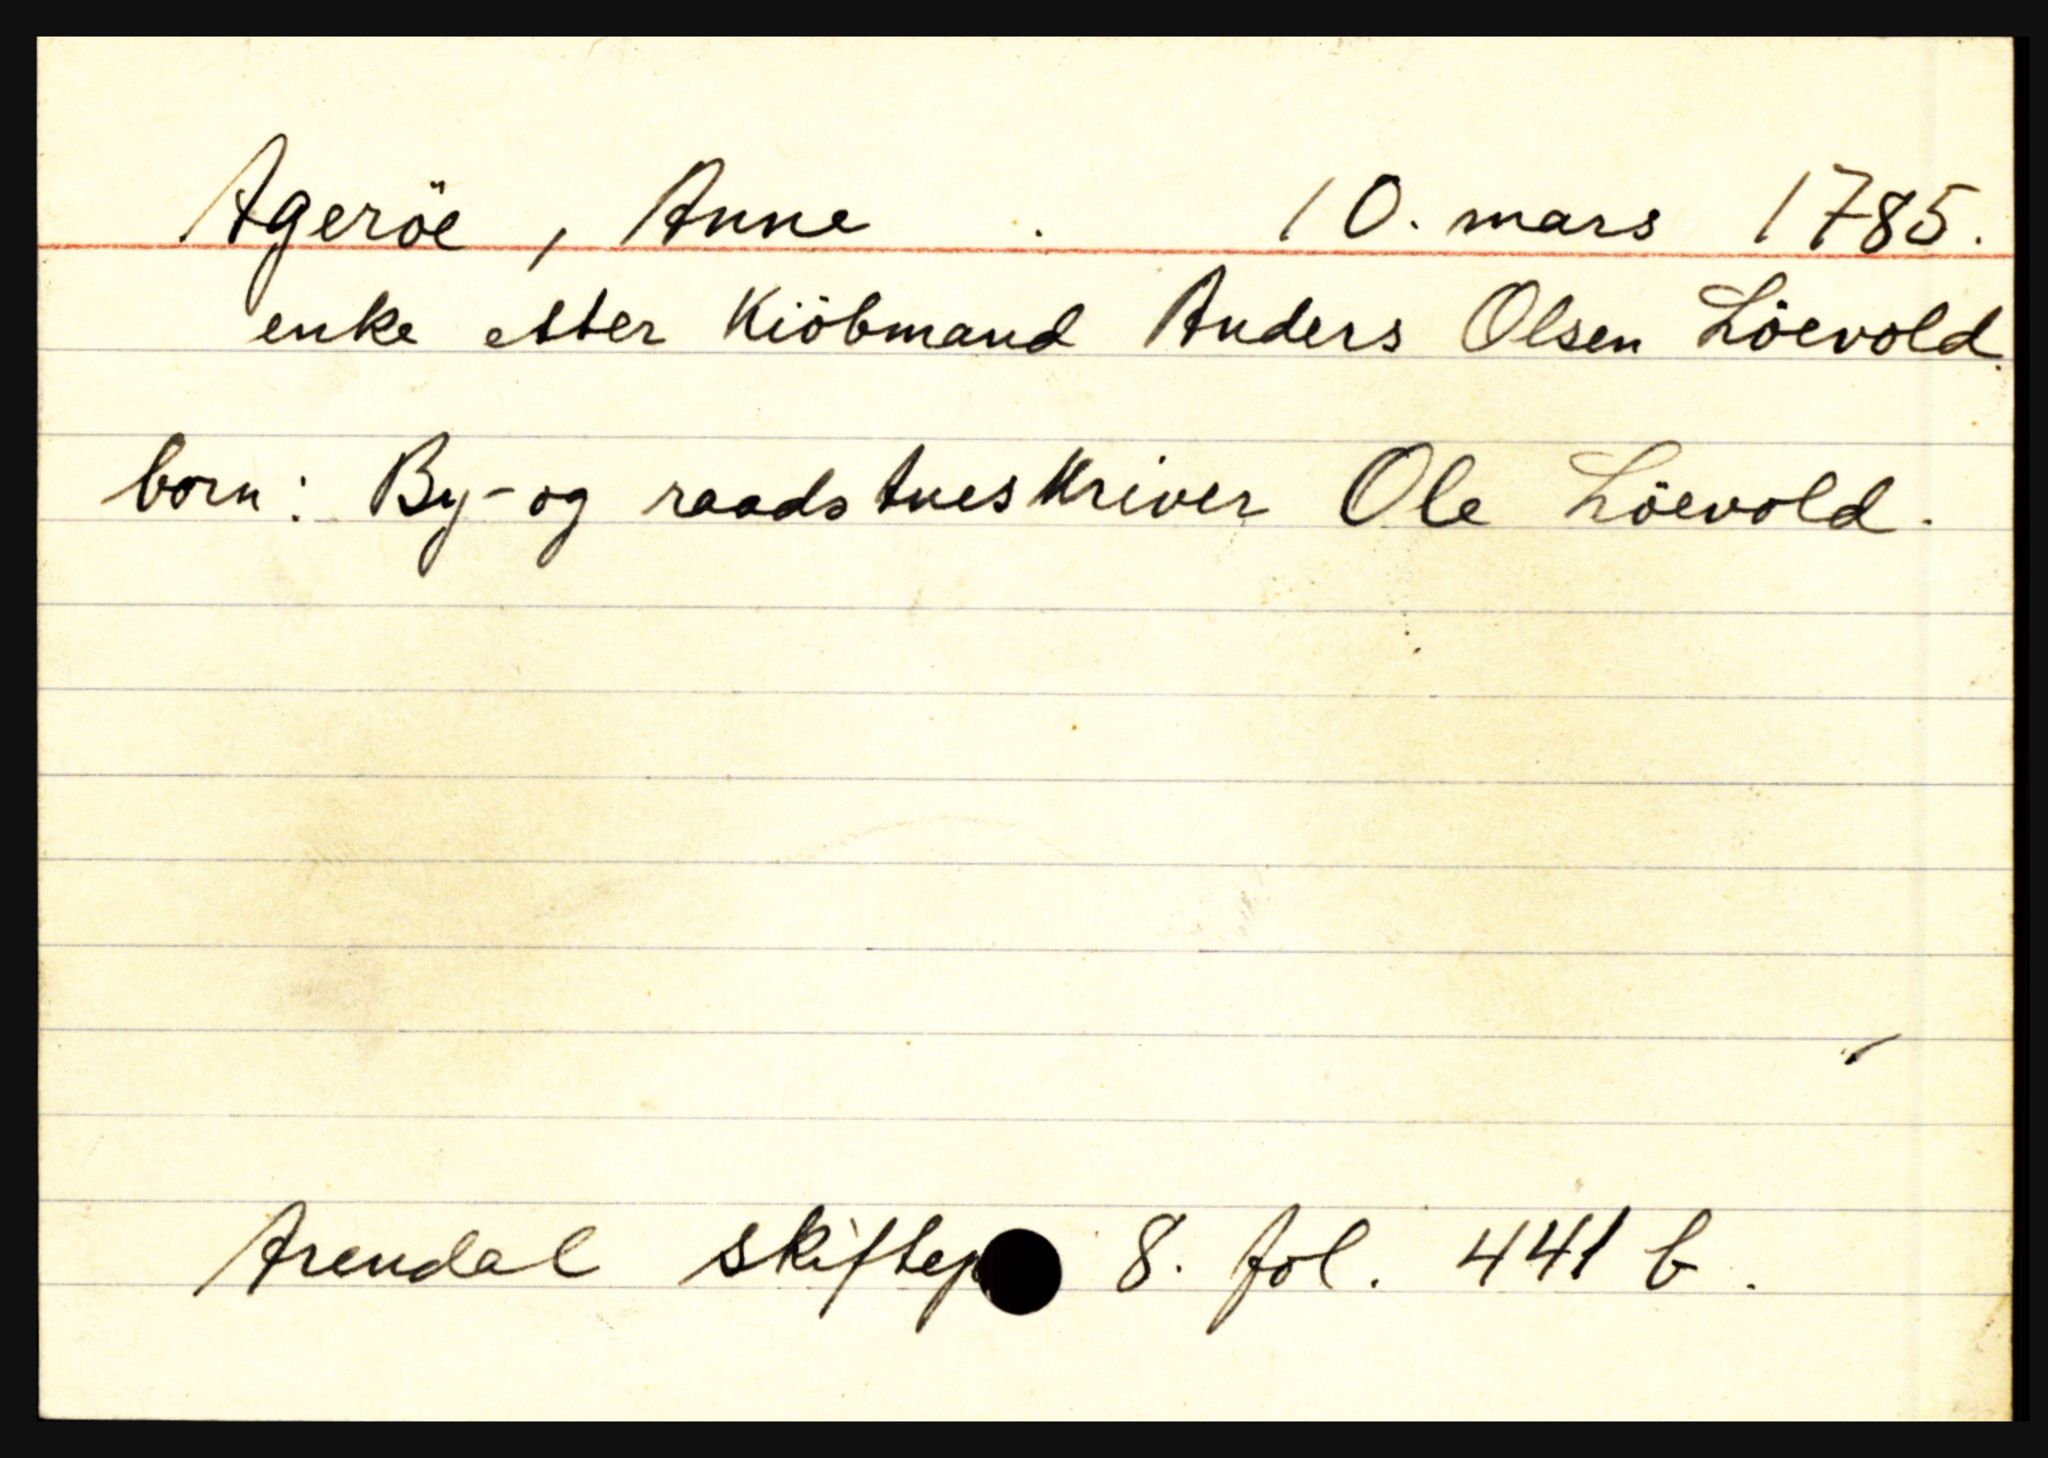 Ageröe, Anne . 10. mars 1785.
enke etter Kiöbmand Anders Olsen Löevold.
born: By- og raadstueskriver Ole Löevold.
Arendal skiftep 8. fol. 441 b.